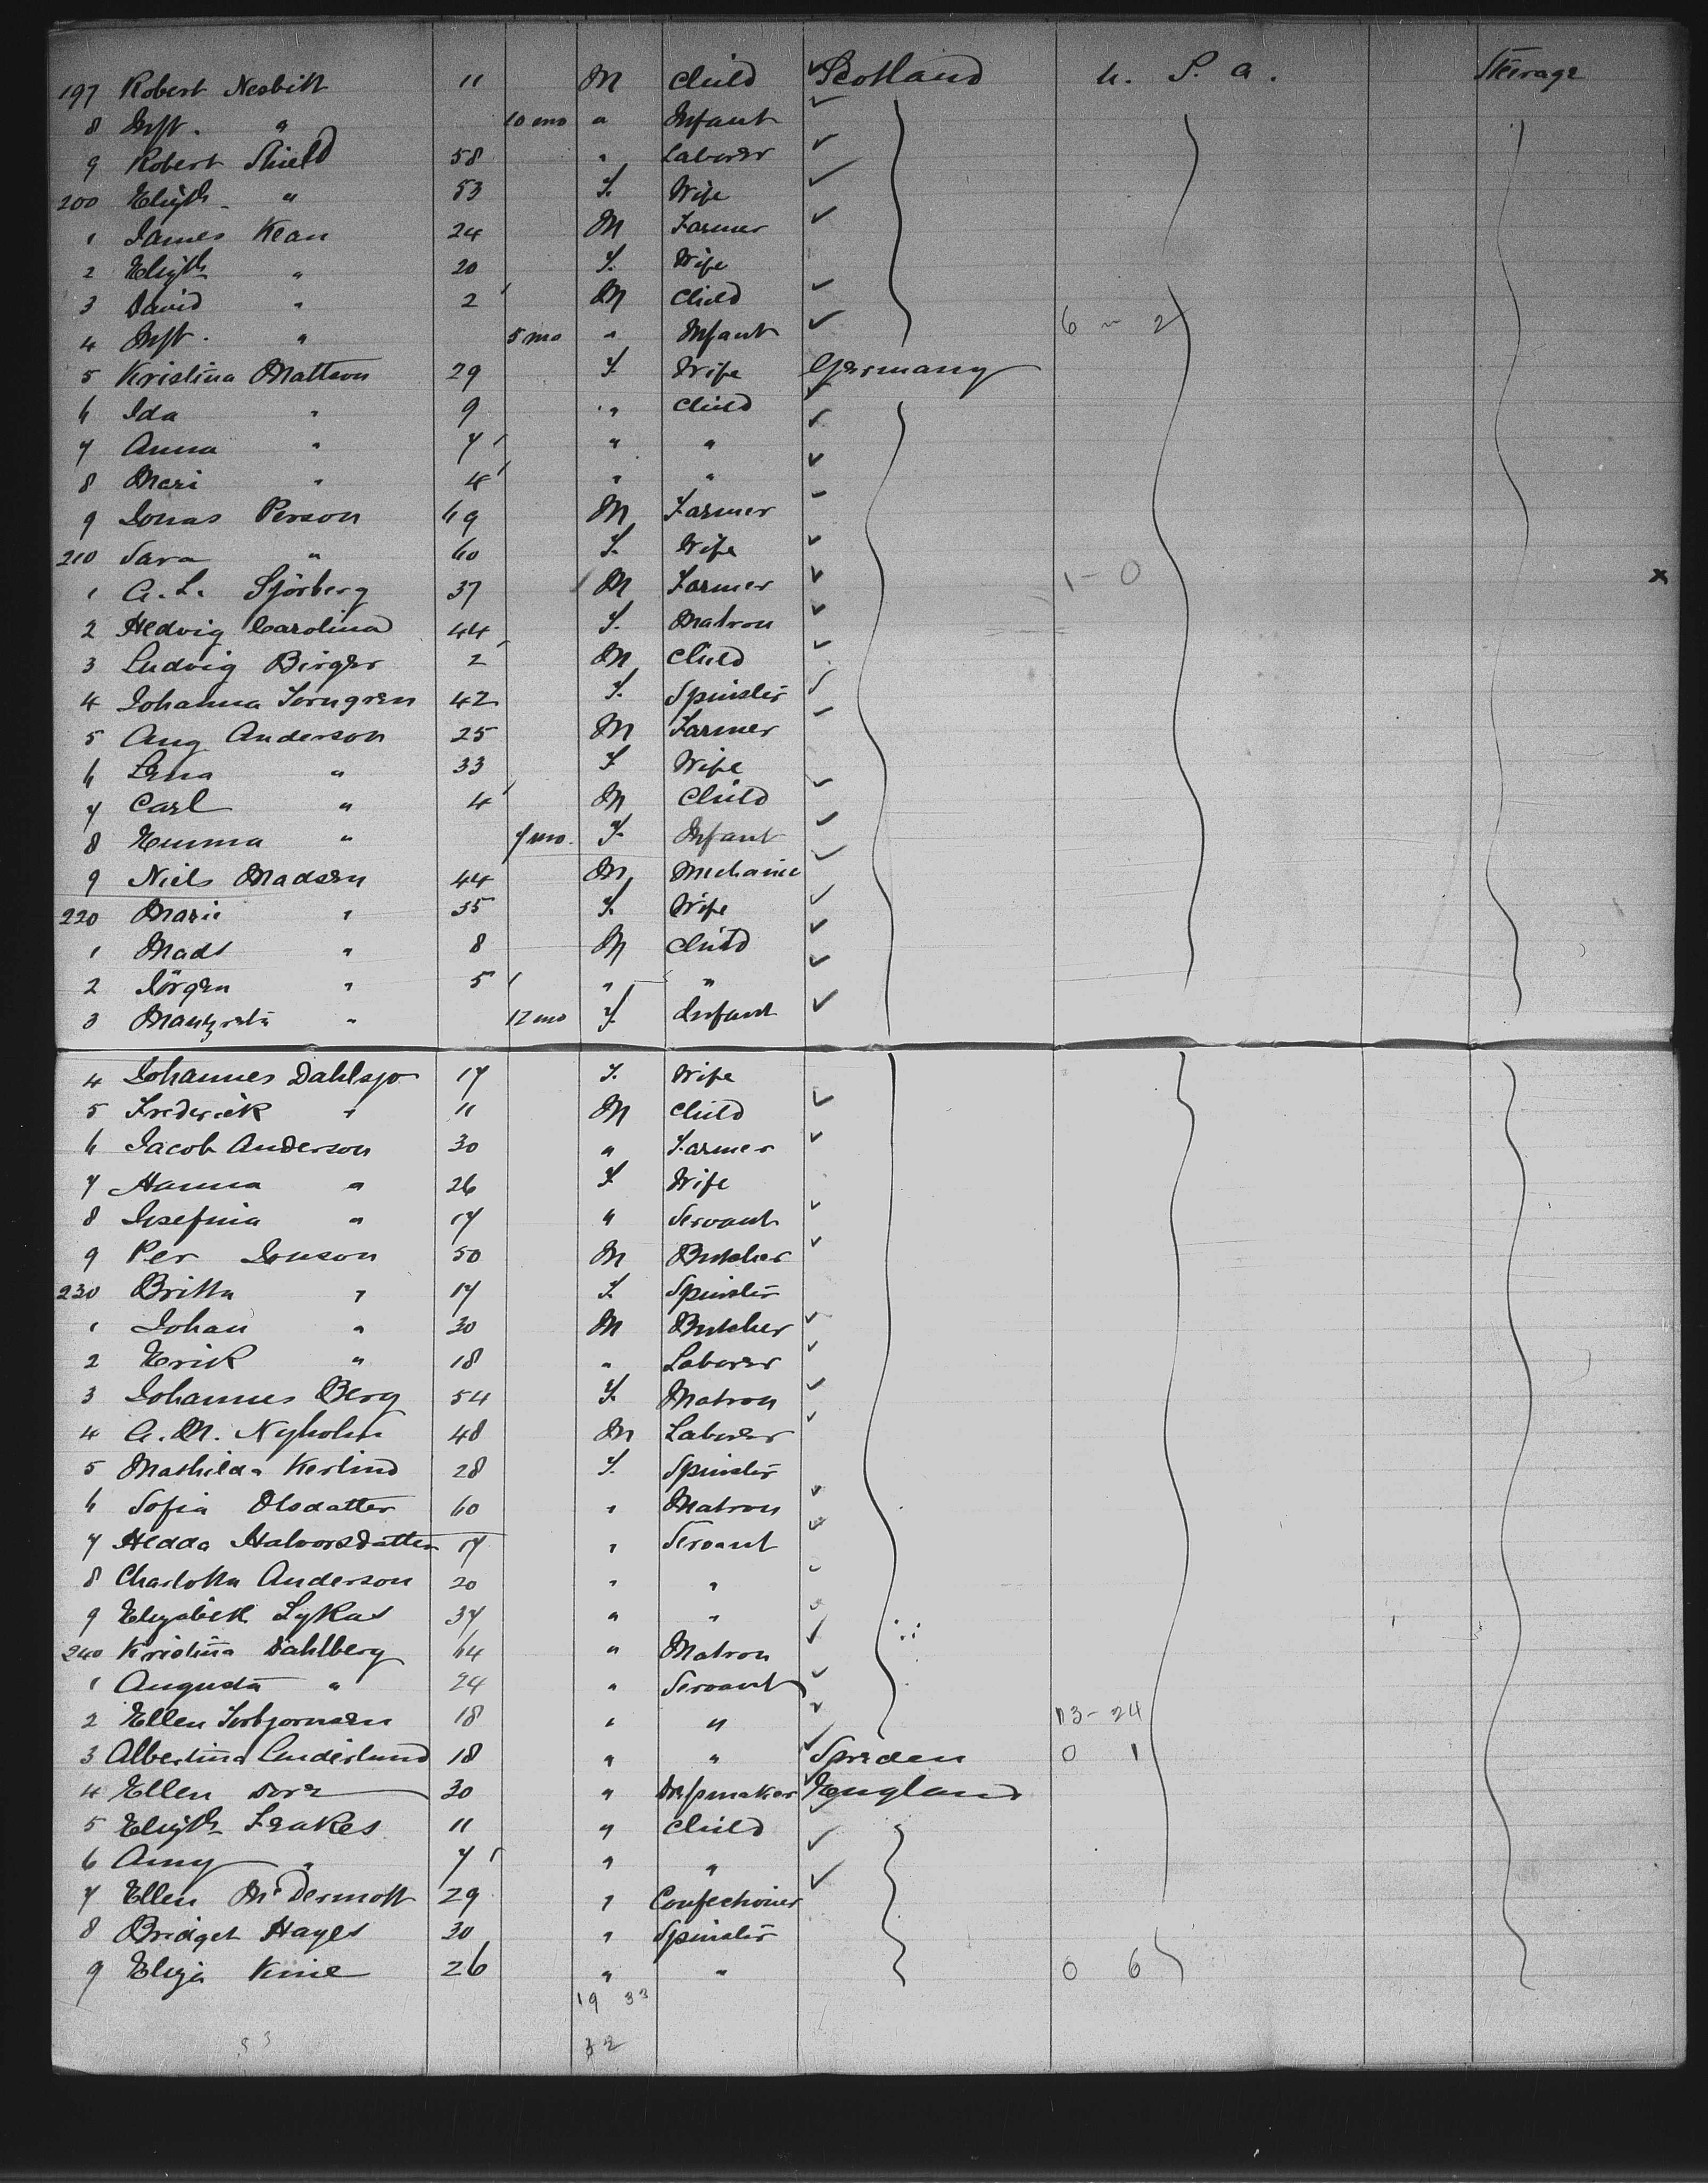 197 Robert Nesbitt 11 M Child Scotland U. S. A. Steerage
8 Inft. " 10 mo " Infant
9 Robert Shield 58 " Laborer
200 Elizth " 53 F. Wife
1 James Kean 24 M Farmer
2 Elizth " 20 F. Wife
3 David " 2 M Child
4 Inft. " 5 mo " Infant 6 - 2
5 Kristina Mattson 29 F. Wife Germany
6 Ida " 9 " Child
7 Anna " 7 " "
8 Meri " 4 " "
9 Jonas Person 69 M Farmer
210 Sara " 60 F. Wife
1 A. L. Sjörberg 37 M Farmer 1 - 0 x
2 Hedvig Carolina 44 F. Matron
3 Ludvig Birger 2 M Child
4 Johanna Torngren 42 F. Spinster
5 Aug Anderson 25 M Farmer
6 Lena " 33 F Wife
7 Carl " 4 M Child
8 Emma " 7 mo. F. Infant
9 Niels Madsen 44 M Mechanic
220 Marie " 35 F. Wife
1 Mads " 8 M Child
2 Jörgen " 5 " "
3 " 12 mo F. Infant
4 Johannes Dahlsjo 17 F. Wife
5 Frederick " 11 M Child
6 Jacob Anderson 30 " Farmer
7 Hanna " 26 F Wife
8 Josefina " 17 " Servant
9 Per Jonson 50 M Butcher
230 Britta " 17 F. Spinster
1 Johan " 30 M Butcher
2 Erik " 18 " Laborer
3 Johannes Berg 54 F. Matron
4 A. M. Nyholm 48 M Laborer
5 Mathilda Kerlind 28 F. Spinster
6 Sofia Olsdatter 60 " Matron
7 Hedda Halvorsdatter 17 " Servant
8 Charlotta Anderson 20 " "
9 Elizabeth Lykas 37 " "
240 Kristina Dahlberg 64 " Matron
1 Augusta " 24 " Servant
2 Ellen Torbjornsen 18 " " 13 - 24
3 Albertina Cuderlund 18 " " Sweden 0 1
4 Ellen Dore 30 " Dressmaker England
5 Elizth Leakes 11 " Child
6 Amy " 7 " "
7 Ellen McDermott 29 " Confectioner
8 Bridget Hayes 30 " Spinster
9 Eliza Kine 26 " " 0 6
19 33
53 32